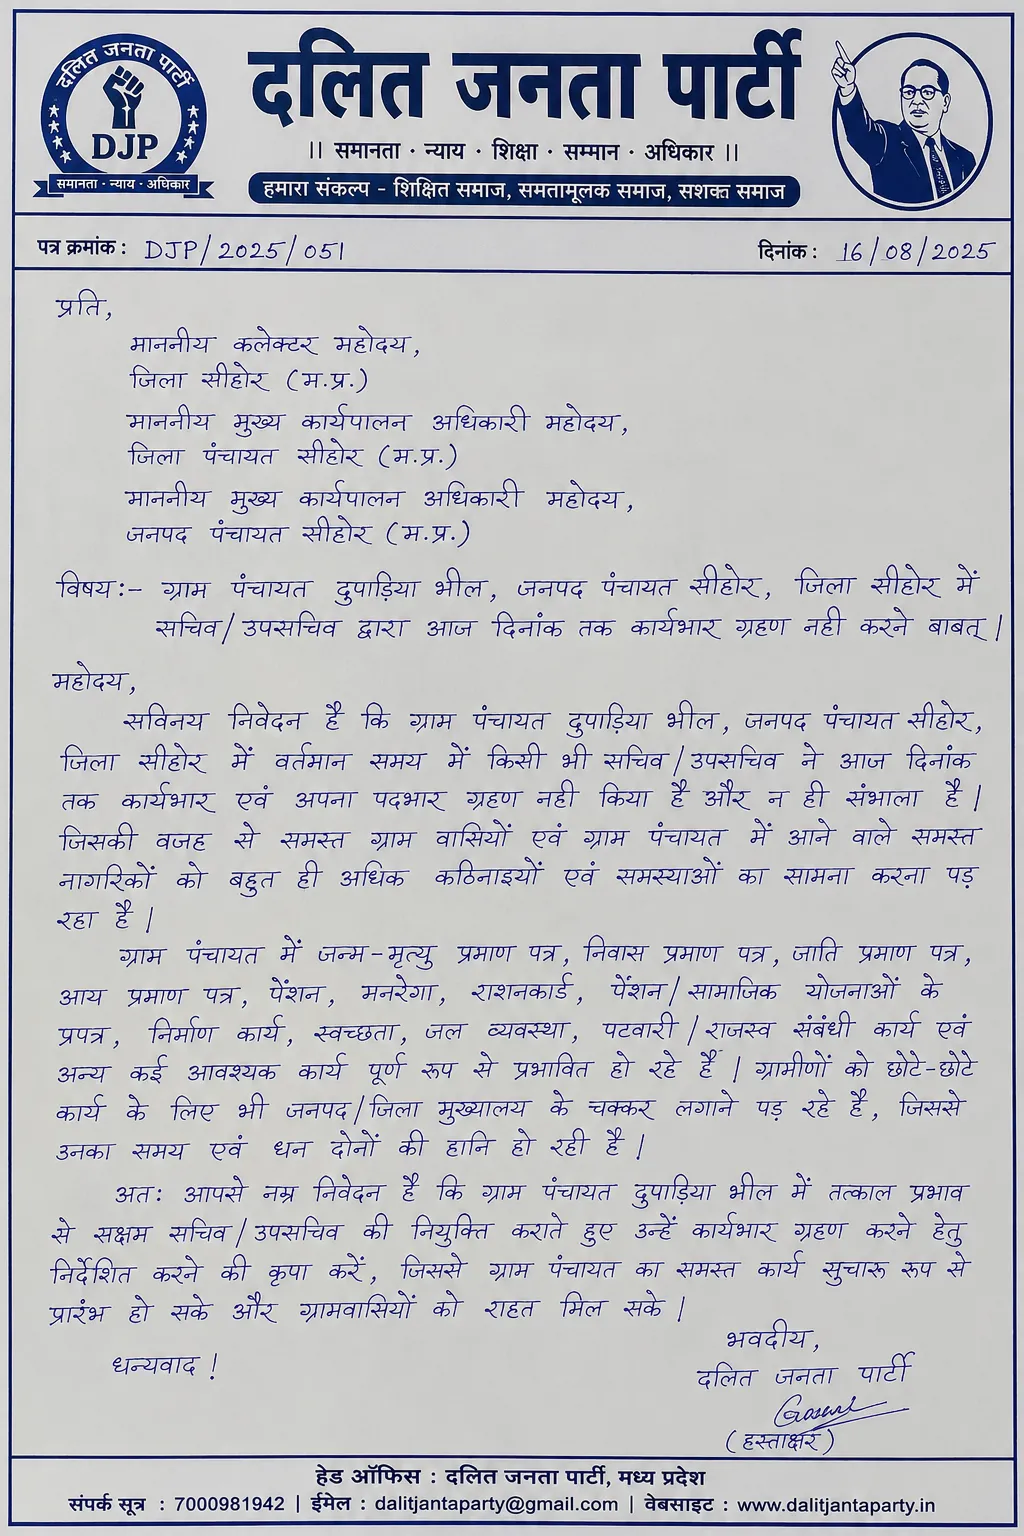 दलित जनता पार्टी
DJP
समानता · न्याय · अधिकार
दलित जनता पार्टी
।। समानता · न्याय · शिक्षा · सम्मान · अधिकार ।।
हमारा संकल्प - शिक्षित समाज, समतामूलक समाज, सशक्त समाज
पत्र क्रमांक : DJP/2025/051 दिनांक : 16/08/2025
प्रति,
माननीय कलेक्टर महोदय,
जिला सीहोर (म.प्र.)
माननीय मुख्य कार्यपालन अधिकारी महोदय,
जिला पंचायत सीहोर (म.प्र.)
माननीय मुख्य कार्यपालन अधिकारी महोदय,
जनपद पंचायत सीहोर (म.प्र.)
विषय:- ग्राम पंचायत दुपाड़िया भील, जनपद पंचायत सीहोर, जिला सीहोर में
सचिव/उपसचिव द्वारा आज दिनांक तक कार्यभार ग्रहण नही करने बाबत्।
महोदय,
सविनय निवेदन है कि ग्राम पंचायत दुपाड़िया भील, जनपद पंचायत सीहोर,
जिला सीहोर में वर्तमान समय में किसी भी सचिव/उपसचिव ने आज दिनांक
तक कार्यभार एवं अपना पदभार ग्रहण नही किया है और न ही संभाला है।
जिसकी वजह से समस्त ग्राम वासियों एवं ग्राम पंचायत में आने वाले समस्त
नागरिकों को बहुत ही अधिक कठिनाइयों एवं समस्याओं का सामना करना पड़
रहा है।
ग्राम पंचायत में जन्म-मृत्यु प्रमाण पत्र, निवास प्रमाण पत्र, जाति प्रमाण पत्र,
आय प्रमाण पत्र, पेंशन, मनरेगा, राशनकार्ड, पेंशन/सामाजिक योजनाओं के
प्रपत्र, निर्माण कार्य, स्वच्छता, जल व्यवस्था, पटवारी/राजस्व संबंधी कार्य एवं
अन्य कई आवश्यक कार्य पूर्ण रूप से प्रभावित हो रहे हैं। ग्रामीणों को छोटे-छोटे
कार्य के लिए भी जनपद/जिला मुख्यालय के चक्कर लगाने पड़ रहे है, जिससे
उनका समय एवं धन दोनों की हानि हो रही है।
अत: आपसे नम्र निवेदन है कि ग्राम पंचायत दुपाड़िया भील में तत्काल प्रभाव
से सक्षम सचिव/उपसचिव की नियुक्ति कराते हुए उन्हें कार्यभार ग्रहण करने हेतु
निर्देशित करने की कृपा करें, जिससे ग्राम पंचायत का समस्त कार्य सुचारू रूप से
प्रारंभ हो सके और ग्रामवासियों को राहत मिल सके।
भवदीय,
धन्यवाद!
दलित जनता पार्टी
(हस्ताक्षर)
हेड ऑफिस : दलित जनता पार्टी, मध्य प्रदेश
संपर्क सूत्र : 7000981942 | ईमेल : dalitjantaparty@gmail.com | वेबसाइट : www.dalitjantaparty.in